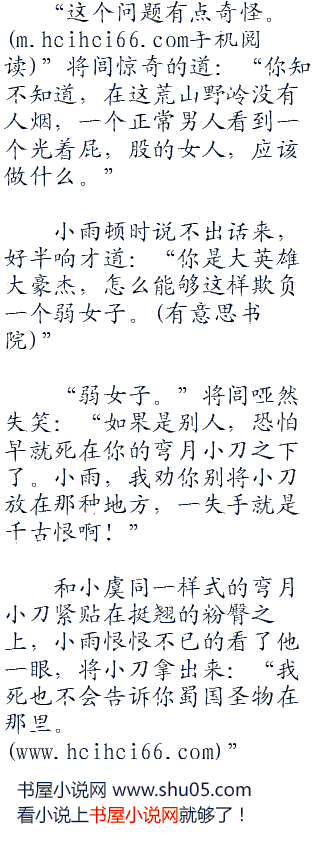 “这个问题有点奇怪。
(m.hcihci66.com手机阅
读)”将闾惊奇的道：“你知
不知道，在这荒山野岭没有
人烟，一个正常男人看到一
个光着屁，股的女人，应该
做什么。”
小雨顿时说不出话来，
好半响才道：“你是大英雄
大豪杰，怎么能够这样欺负
一个弱女子。(有意思书
院)”
“弱女子。”将闾哑然
失笑：“如果是别人，恐怕
早就死在你的弯月小刀之下
了。小雨，我劝你别将小刀
放在那种地方，一失手就是
千古恨啊！”
和小虞同一样式的弯月
小刀紧贴在挺翘的粉臀之
上，小雨恨恨不已的看了他
一眼，将小刀拿出来：“我
死也不会告诉你蜀国圣物在
那里。
(www.hcihci66.com)”
书屋小说网 www.shu05.com
看小说上书屋小说网就够了！